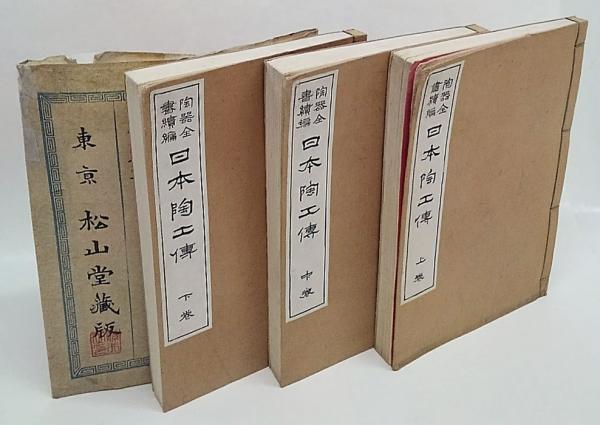 東京 松山堂藏版
陶器全
書續編
日本陶工傳
下卷
陶器全
書續編
日本陶工傳
中卷
陶器全
書續編
日本陶工傳
上卷